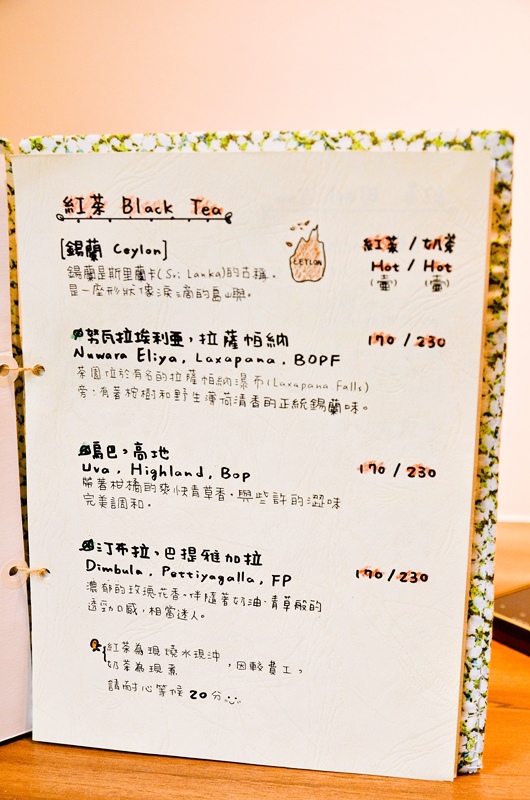 紅茶 Black Tea
[錫蘭 Ceylon]
CEYLON
紅茶 / 奶茶
Hot / Hot
(壺) (壺)
錫蘭是斯里蘭卡(Sri Lanka)的古稱。
是一座形狀像淚滴的島嶼。
努瓦拉埃利亞，拉薩帕納 170 / 230
Nuwara Eliya, Laxapana, BOPF
茶園位於有名的拉薩帕納瀑布(Laxapana Falls)
旁，有著桉樹和野生薄荷清香的正統錫蘭味。
烏巴，高地
Uva, Highland, Bop 170 / 230
帶著柑橘的爽快青草香，與些許的澀味
完美調和。
汀布拉，巴提雅加拉
Dimbula, Pettiyagalla, FP 170 / 230
濃郁的玫瑰花香，伴隨著奶油、青草般的
透勁口感，相當迷人。
紅茶為現燒水現沖
奶茶為現煮 ，因較費工，
請耐心等候 20 分